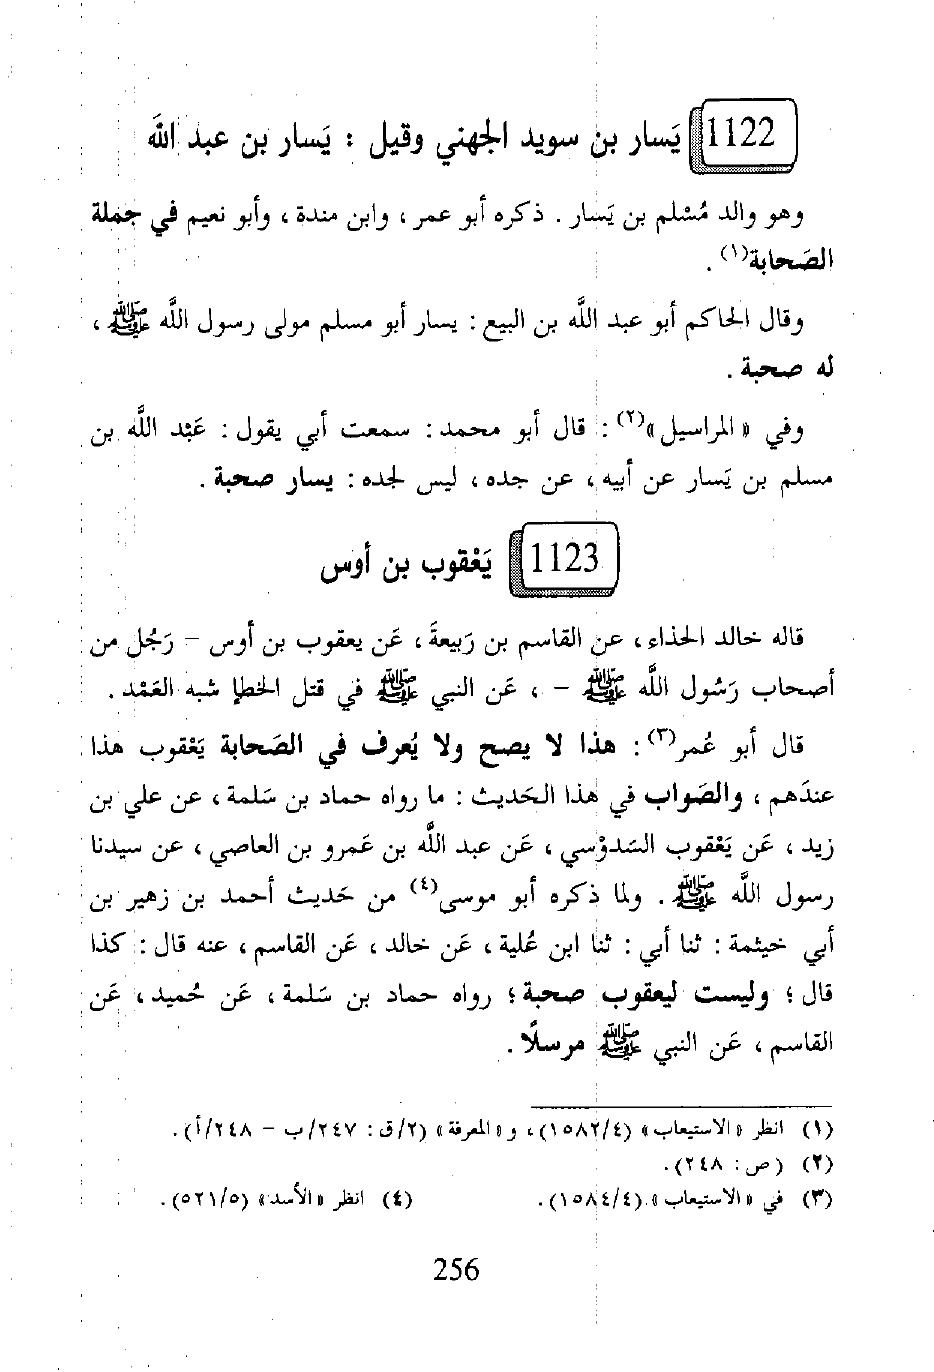 1122 يَسار بن سويد الجهني وقيل : يَسار بن عبد الله
وهو والد مُسْلم بن يَسار . ذكره أبو عمر ، وابن مندة ، وأبو نعيم في جملة
الصَحابة(١) .
وقال الحاكم أبو عبد اللَّه بن البيع : يسار أبو مسلم مولى رسول اللَّه ﷺ ،
له صحبة .
وفي « المراسيل »(٢) : قال أبو محمد : سمعت أبي يقول : عَبْد اللَّه بن
مسلم بن يَسار عن أبيه ، عن جده ، ليس لجده : يسار صحبة .
1123 يَعْقوب بن أوس
قاله خالد الحذاء ، عن القاسم بن رَبيعةَ ، عَن يعقوب بن أوس – رَجُل من
أصحاب رَسُول اللَّه ﷺ – ، عَن النبي ﷺ في قتل الخطإ شبه العَمْد .
قال أبو عُمر(٣) : هذا لا يصح ولا يُعرف في الصَحابة يَعْقوب هذا
عندَهم ، والصَواب في هذا الحَديث : ما رواه حماد بن سَلمة ، عن علي بن
زيد ، عَن يَعْقوب السَدوْسي ، عَن عبد اللَّه بن عَمرو بن العاصي ، عن سيدنا
رسول اللَّه ﷺ . ولما ذكره أبو موسى(٤) من حَديث أحمد بن زهير بن
أبي خيثمة : ثنا أبي : ثنا ابن عُلية ، عَن خالد ، عَن القاسم ، عنه قال : كذا
قال ؛ وليست ليعقوب صحبة ؛ رواه حماد بن سَلمة ، عَن حُميد ، عَن
القاسم ، عَن النبي ﷺ مرسلًا .
(١) انظر « الاستيعاب » (١٥٨٢/٤) ، و « المعرفة » (٢/ق : ٢٤٧/ب – ٢٤٨/أ) .
(٢) (ص : ٢٤٨) .
(٣) في « الاستيعاب » (١٥٨٤/٤) . (٤) انظر « الأسد » (٥٢١/٥) .
256